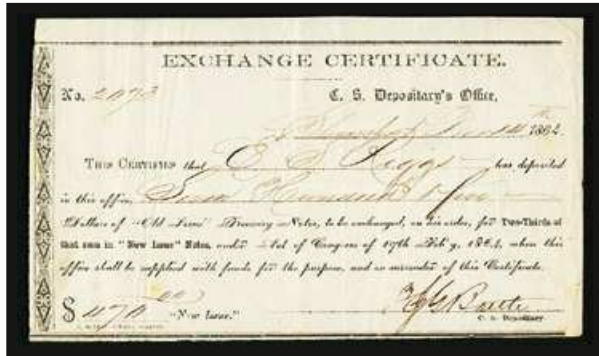 EXCHANGE CERTIFICATE.
No. 2073 C. S. Depositary's Office,
1864.
THIS CERTIFIES that E. S. Riggs has deposited
in this office, Seven Hundred & five
Dollars of "Old Issue" Treasury Notes, to be exchanged, on his order, for Two-Thirds of
that sum in "New Issue" Notes, under Act of Congress of 17th Feb'y, 1864, when this
office shall be supplied with funds for the purpose, and on surrender of this Certificate.
$ 470 "New Issue."
C. S. Depositary